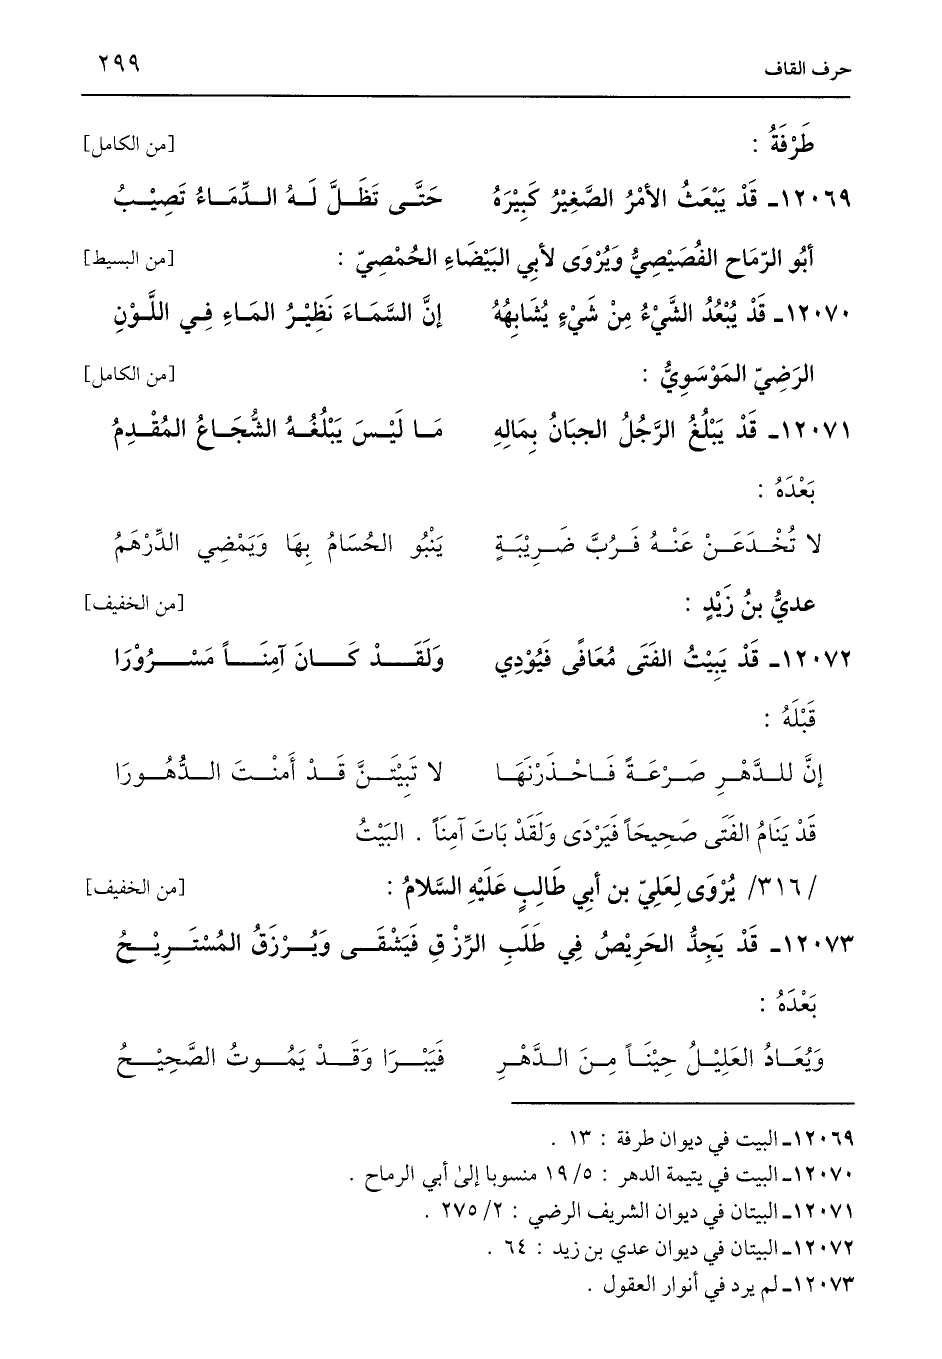 حرف القاف ٢٩٩
طَرْفَةُ : [من الكامل]
١٢٠٦٩ـ قَدْ يَبْعَثُ الأمْرُ الصَّغِيْرُ كَبِيْرَهُ حَتَّى تَظَلَّ لَهُ الدِّمَاءُ تَصِيْبُ
أبُو الرّمَاحِ الفُصَيْصِيُّ وَيُرْوَى لأبي البَيْضَاءِ الحُمْصِيّ : [من البسيط]
١٢٠٧٠ـ قَدْ يُبْعُدُ الشَّيْءُ مِنْ شَيْءٍ يُشَابِهُهُ إنَّ السَّمَاءَ نَظِيْرُ المَاءِ فِي اللَّوْنِ
الرَضِيّ المَوْسَوِيُّ : [من الكامل]
١٢٠٧١ـ قَدْ يَبْلُغُ الرَّجُلُ الجبَانُ بِمَالِهِ مَا لَيْسَ يَبْلُغُهُ الشُّجَاعُ المُقْدِمُ
بَعْدَهُ :
لا تُخْدَعَنْ عَنْهُ فَرُبَّ ضَرِيْبَةٍ يَنْبُو الحُسَامُ بِهَا وَيَمْضِي الدِّرْهَمُ
عديُّ بنُ زَيْدٍ : [من الخفيف]
١٢٠٧٢ـ قَدْ يَبِيْتُ الفَتَى مُعَافًى فَيُوْدِي وَلَقَدْ كَانَ آمِنَاً مَسْرُوْرَا
قَبْلَهُ :
إنَّ للدَّهْرِ صَرْعَةً فَاحْذَرْنَهَا لا تَبِيْتَنَّ قَدْ أَمنْتَ الدُّهُورَا
قَدْ يَنَامُ الفَتَى صَحِيحَاً فَيَرْدَى وَلَقَدْ بَاتَ آمِنَاً . البَيْتُ
/ ٣١٦/ يُرْوَى لِعَلِيّ بن أبي طَالِبٍ عَلَيْهِ السَّلامُ : [من الخفيف]
١٢٠٧٣ـ قَدْ يَجِدُّ الحَرِيْصُ فِي طَلَبِ الرِّزْقِ فَيَشْقَى وَيُرْزَقُ المُسْتَرِيْحُ
بَعْدَهُ :
وَيُعَادُ العَلِيْلُ حِيْنَاً مِنَ الدَّهْرِ فَيَبْرَا وَقَدْ يَمُوتُ الصَّحِيْحُ
١٢٠٦٩ـ البيت في ديوان طرفة : ١٣ .
١٢٠٧٠ـ البيت في يتيمة الدهر : ٥/ ١٩ منسوبا إلى أبي الرماح .
١٢٠٧١ـ البيتان في ديوان الشريف الرضي : ٢/ ٢٧٥ .
١٢٠٧٢ـ البيتان في ديوان عدي بن زيد : ٦٤ .
١٢٠٧٣ـ لم يرد في أنوار العقول .